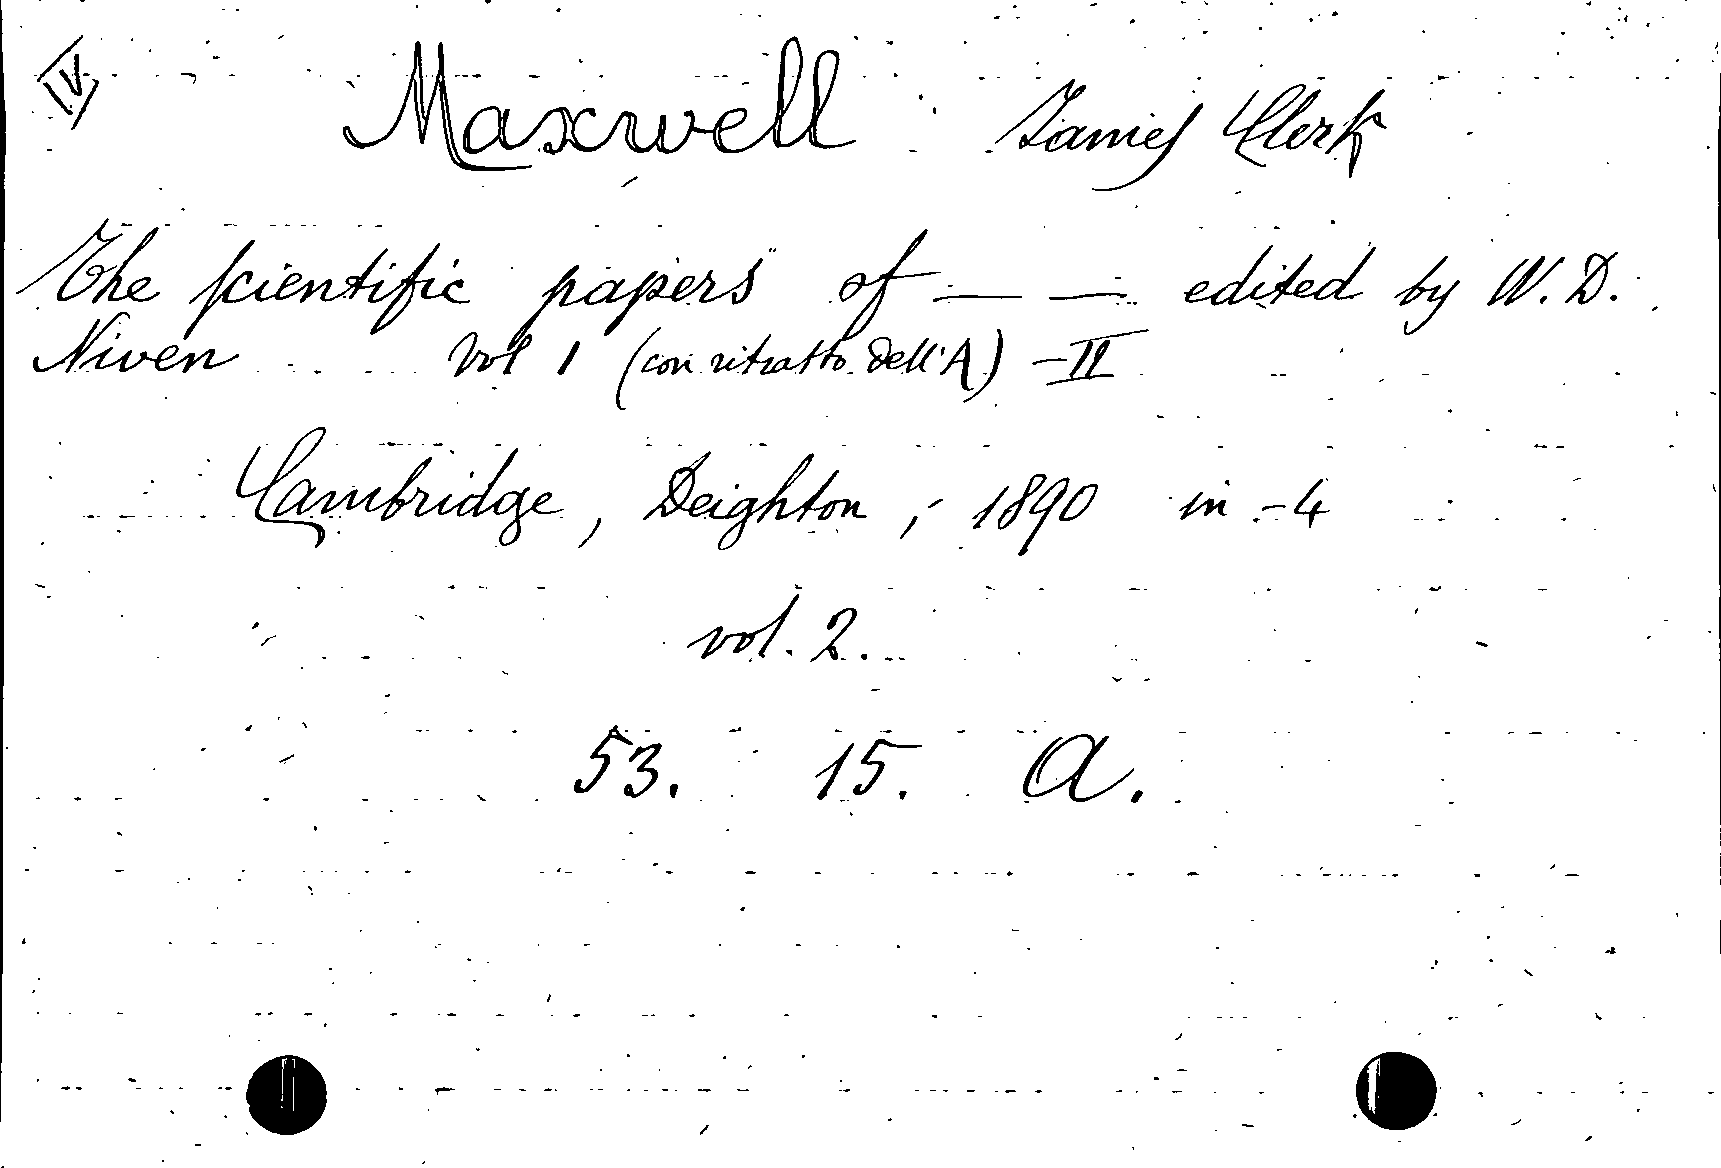 IV
Maxwell James Clerk
The scientific papers of — — edited by W. D.
Niven vol I (con ritratto dell'A) - II
Cambridge, Deighton, 1890 in - 4
vol. 2.
53. 15. A.